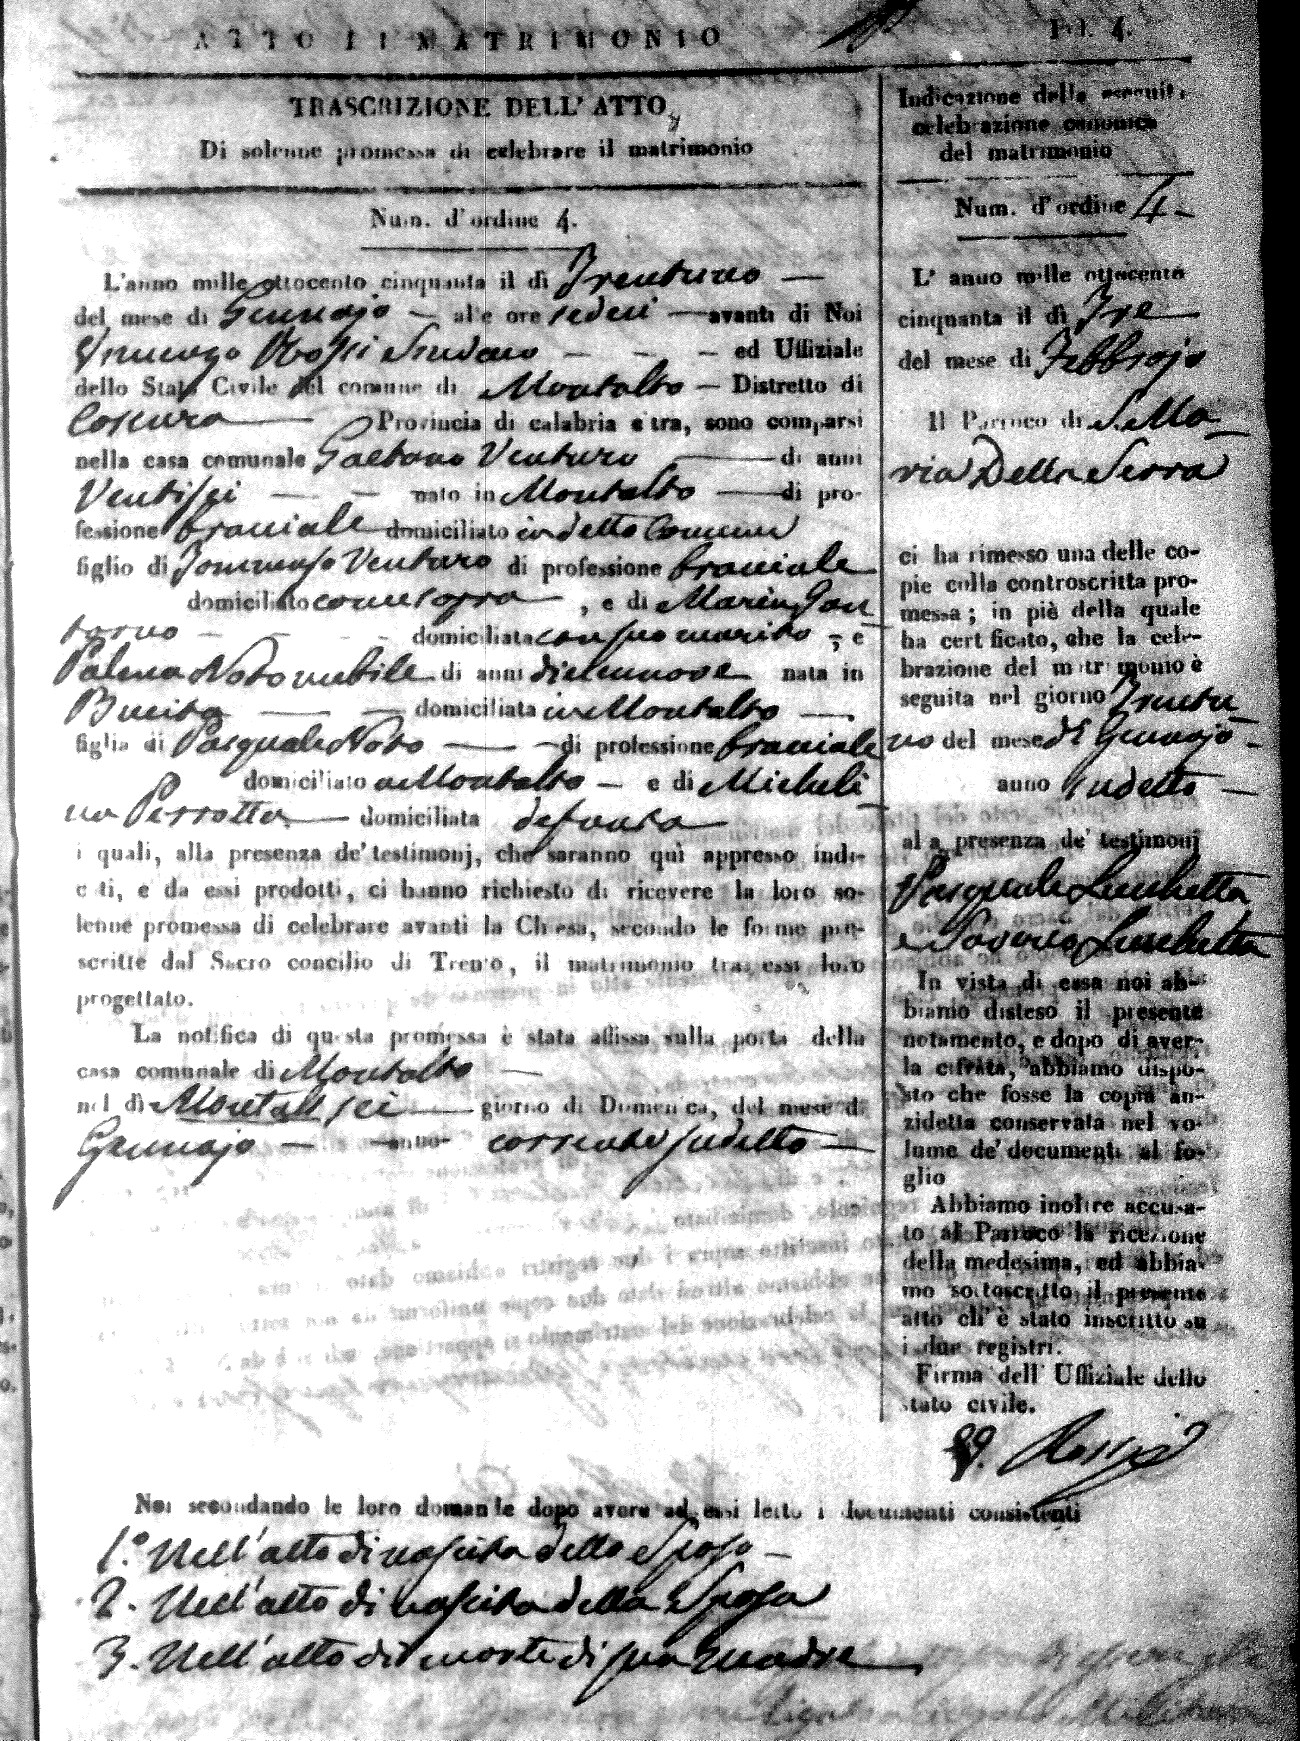 ATTO DI MATRIMONIO
Fol. 4.
TRASCRIZIONE DELL' ATTO
Di solenne promessa di celebrare il matrimonio
Num. d'ordine 4.
L'anno mille ottocento cinquanta il dì Trentuno —
del mese di Gennajo — alle ore sedeci — avanti di Noi
Rossi Sindaco — — — ed Uffiziale
dello Stato Civile del comune di Montalto — Distretto di
Cosenza — Provincia di calabria citra, sono comparsi
nella casa comunale Gaetano Venturo — di anni
Ventisei — — nato in Montalto — di pro-
fessione bracciale domiciliato in detto Comune
figlio di Tommaso Venturo di professione bracciale
domiciliato come sopra — , e di Maria
— — domiciliata con suo marito — ; e
Palma Noto nubile di anni diecinnove nata in
Bucita — — domiciliata in Montalto — .
figlia di Pasquale Noto — — di professione bracciale
domiciliato a Montalto — e di Micheli
na Perrotta — domiciliata defonta
i quali, alla presenza de' testimonj, che saranno quì appresso indi-
cati, e da essi prodotti, ci hanno richiesto di ricevere la loro so-
lenne promessa di celebrare avanti la Chiesa, secondo le forme pre-
scritte dal Sacro concilio di Trento, il matrimonio tra essi loro
progettato.
La notifica di questa promessa è stata affissa sulla porta della
casa comunale di Montalto —
nel dì sei — giorno di Domenica, del mese di
Gennajo — anno corrente sudetto —
Indicazione della seguita
celebrazione canonica
del matrimonio
Num. d'ordine 4 -
L' anno mille ottocento
cinquanta il dì Tre
del mese di Febbrajo
Il Parroco di S. Ma
ria Della Serra
ci ha rimesso una delle co-
pie colla controscritta pro-
messa; in piè della quale
ha certificato, che la cele-
brazione del matrimonio è
seguita nel giorno Trentu
no del mese di Gennajo -
anno sudetto —
alla presenza de' testimonj
Pasquale Lucchetta
e Saverio Lucchetta
In vista di essa noi ab-
biamo disteso il presente
notamento, e dopo di aver-
la cifrata, abbiamo dispo-
sto che fosse la copia an-
zidetta conservata nel vo-
lume de' documenti al fo-
glio
Abbiamo inoltre accusa-
to al Parroco la ricezione
della medesima, ed abbia-
mo sottoscritto il presente
atto ch' è stato inscritto su
i due registri.
Firma dell' Uffiziale dello
stato civile.
Rossi
Noi secondando le loro domande dopo avere ad essi letto i documenti consistenti
1.º Nell' atto di nascita dello Sposo —
2. Nell' atto di nascita della Sposa
3. Nell' atto di morte di sua madre